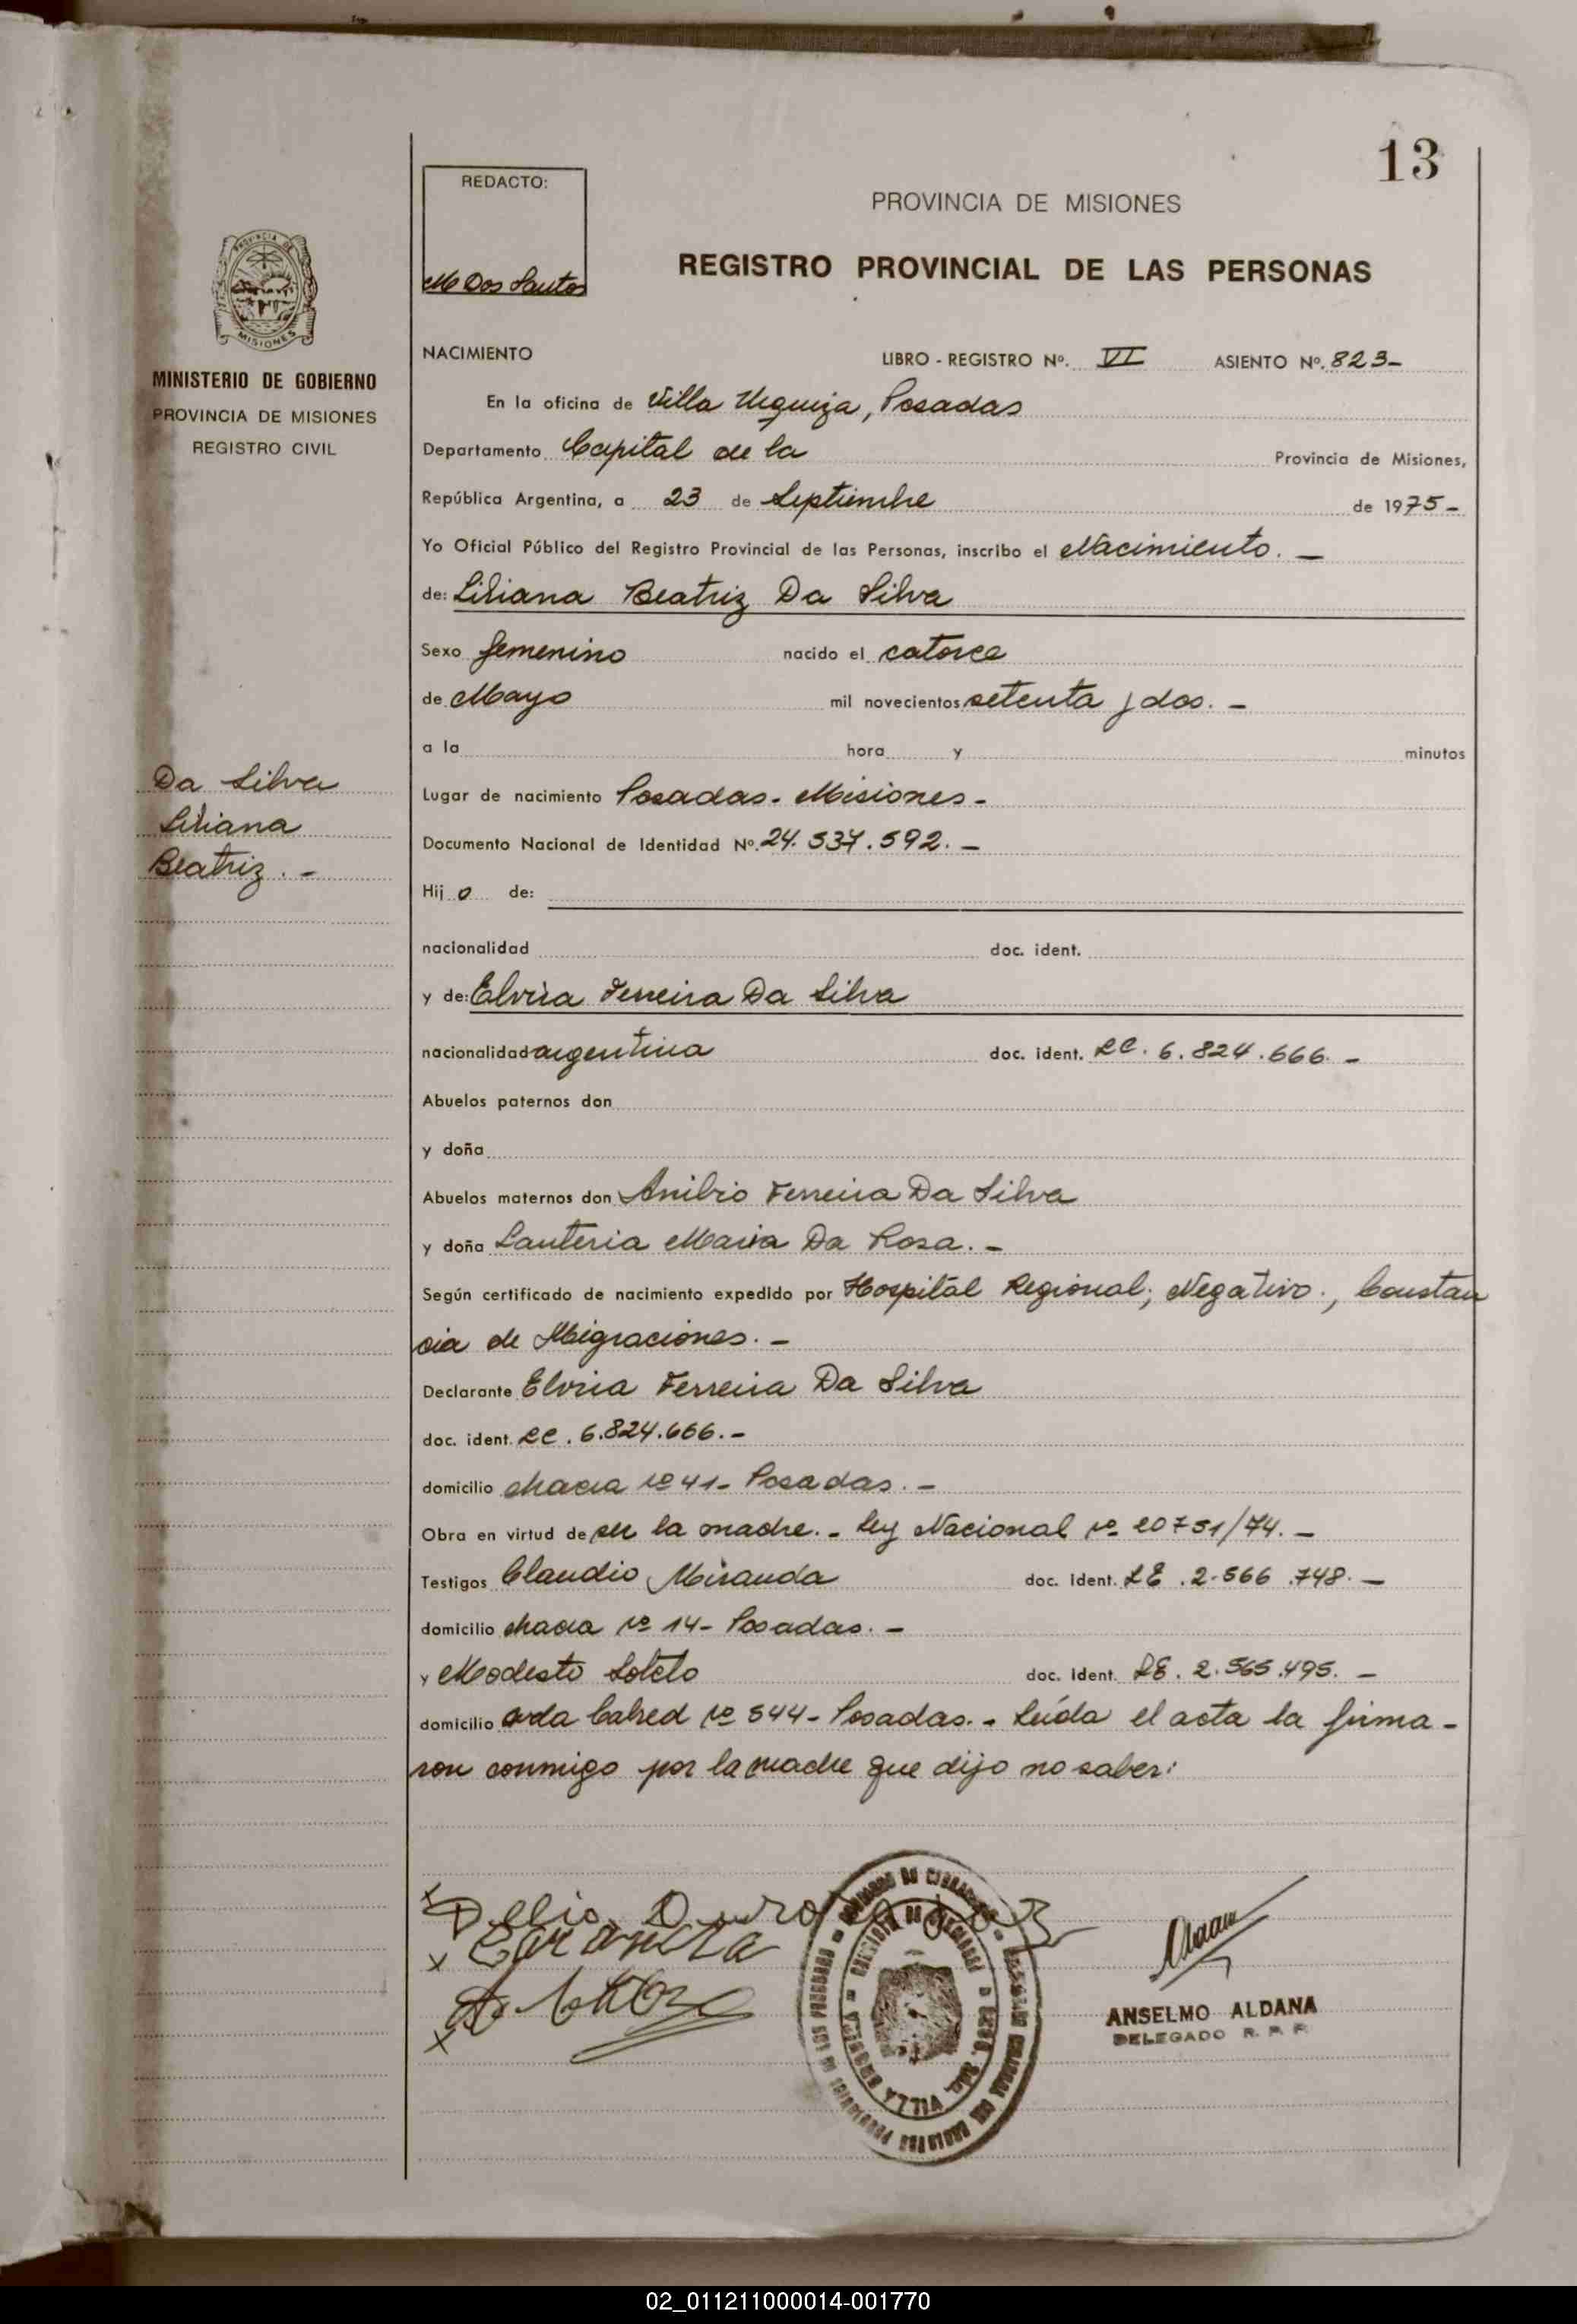 13
REDACTO:
M Dos Santos
PROVINCIA DE MISIONES
REGISTRO PROVINCIAL DE LAS PERSONAS
PROVINCIA DE MISIONES
MINISTERIO DE GOBIERNO
PROVINCIA DE MISIONES
REGISTRO CIVIL
Da Silva
Liliana
Beatriz. -
NACIMIENTO LIBRO - REGISTRO Nº. VI ASIENTO Nº. 823-
En la oficina de Villa Urquiza, Posadas
Departamento Capital de la Provincia de Misiones,
República Argentina, a 23 de Septiembre de 1975-
Yo Oficial Público del Registro Provincial de las Personas, inscribo el Nacimiento. -
de: Liliana Beatriz Da Silva
Sexo femenino nacido el catorce
de Mayo mil novecientos setenta y dos. -
a la hora y minutos
Lugar de nacimiento Posadas - Misiones -
Documento Nacional de Identidad Nº. 24.537.592. -
Hij o de:
nacionalidad doc. ident.
y de: Elvira Ferreira Da Silva
nacionalidad argentina doc. ident. LC. 6.824.666. -
Abuelos paternos don
y doña
Abuelos maternos don Ferreira Da Silva
y doña Lauteria Maria Da Rosa. -
Según certificado de nacimiento expedido por Hospital Regional; Negativo., Constan
cia de Migraciones. -
Declarante Elvira Ferreira Da Silva
doc. ident. LC. 6.824.666. -
domicilio chacra nº 41- Posadas. -
Obra en virtud de ser la madre. - Ley Nacional nº 20751/74. -
Testigos Claudio Miranda doc. ident. LE. 2.566.748. -
domicilio chacra nº 14- Posadas. -
y Modesto Sotelo doc. ident. LE. 2.565.495. -
domicilio avda Cabred nº 544- Posadas. - Leída el acta la firma-
ron conmigo por la madre que dijo no saber:
Delio
ANSELMO ALDANA
DELEGADO R. P. P.
VILLA
02_011211000014-001770